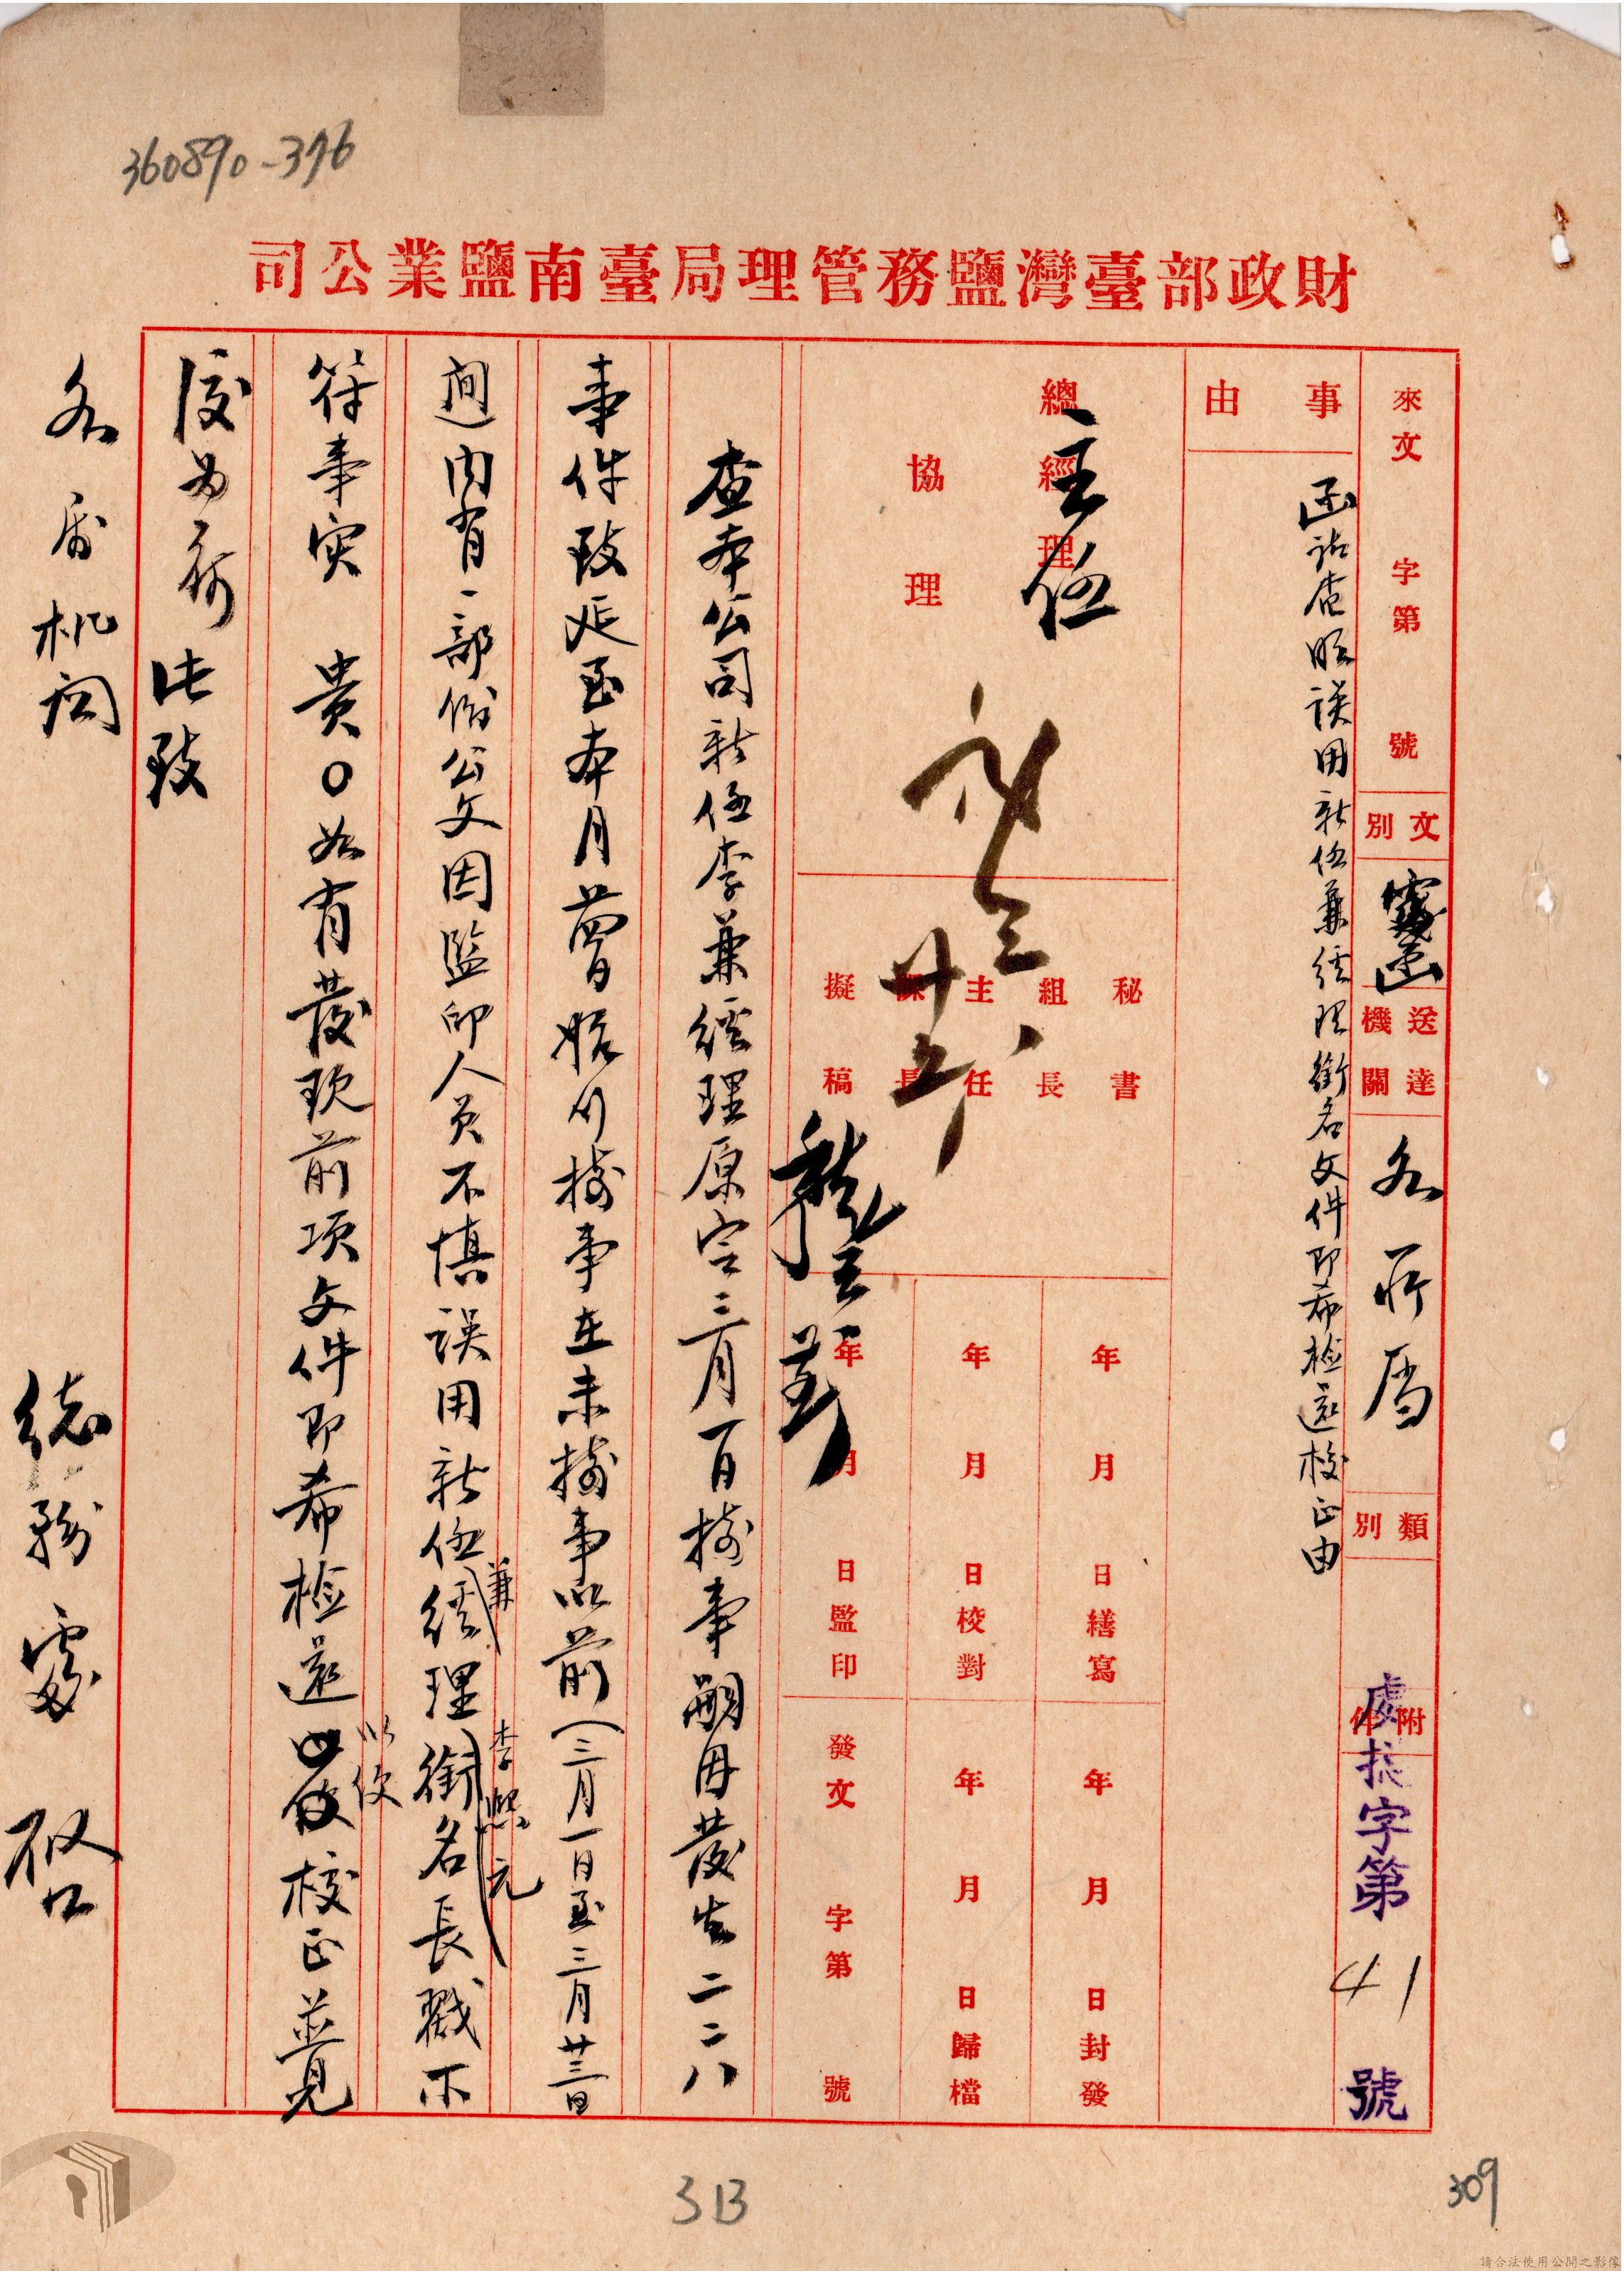 360890-376
財政部臺灣鹽務管理局臺南鹽業公司
來文 字第 號
文別
箋函
送達機關
各所属
類別
附件
處總字第41號
事由
函請查明誤用新任兼經理銜名文件即希檢還校正由
總經理
主任
協理
秘書
組長
主任
課長
擬稿
年 月 日繕寫
年 月 日校對
年 月 日監印
年 月 日封發
年 月 日歸檔
發文 字第 號
查本公司新任李兼經理原定三月一日接事嗣因發生二二八
事件致延至本月廿四日始行接事在未接事以前(三月一日至三月廿三日
間)內有一部份公文因監印人員不慎誤用新任兼經理李熙元銜名長戳不
符事實 貴○如有發現前項文件即希檢還以便校正並見
復为荷 此致
各届机関
總務處 啟
3B
309
請合法使用公開之影像